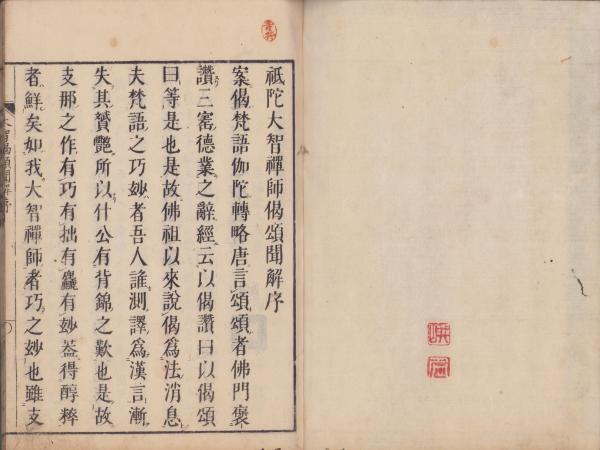 祇陀大智禪師偈頌聞解序
案偈梵語伽陀轉略唐言頌頌者佛門褒
讚三寳德業之辭經云以偈讚曰以偈頌
曰等是也是故佛祖以來說偈爲法消息
夫梵語之巧妙者吾人誰測譯爲漢言漸
失其贇艷所以什公有背錦之歎也是故
支那之作有巧有拙有麤有妙葢得醇粹
者鮮矣如我大智禪師者巧之妙也雖支
大智偈頌聞解序